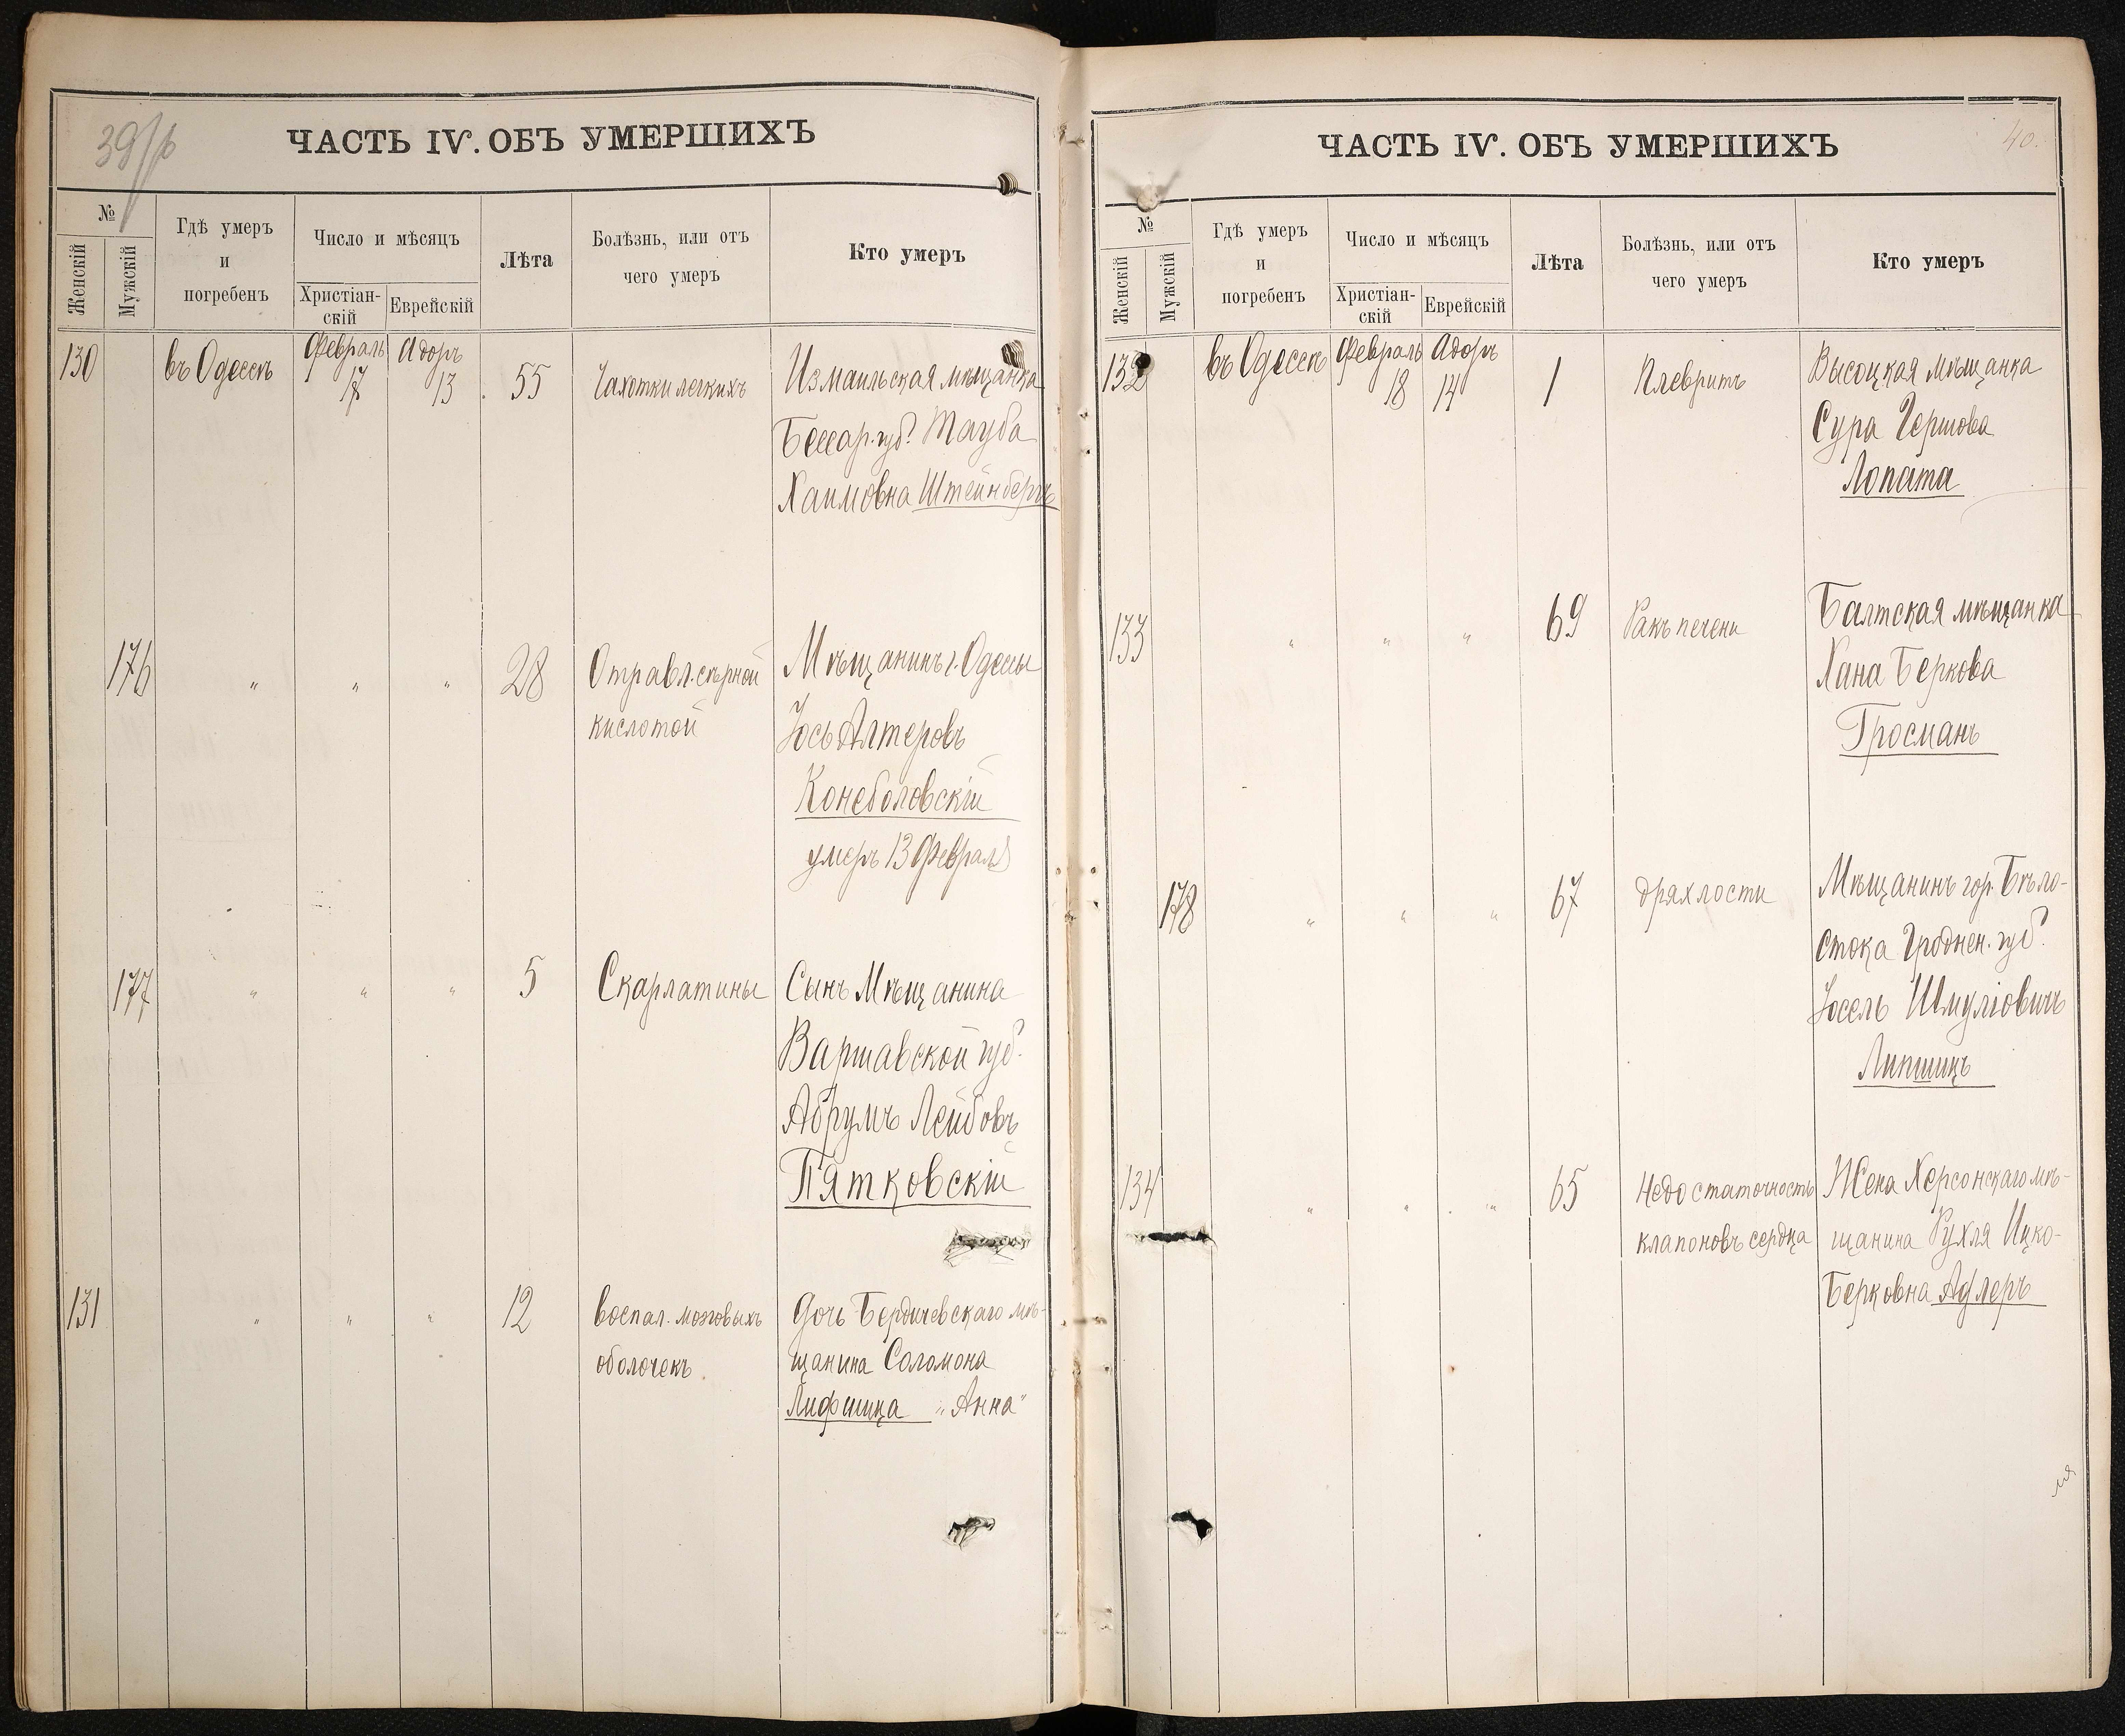 39/р
ЧАСТЬ IV. ОБЪ УМЕРШИХЪ
№
Женскій
Мужскій
Гдѣ умеръ
и
погребенъ
Число и мѣсяцъ
Христіан-
скій
Еврейскій
Лѣта
Болѣзнь, или отъ
чего умеръ
Кто умеръ
130 въ Одессѣ Февраль Адоръ 55 Чахотки легкихъ Измаильская мѣщанка
17 13
Бессар. губ. Тауба
Хаимовна Штейнбергъ
176 " " " 28 Отравл. сѣрной Мѣщанинъ г. Одессы
кислотой Іось Алтеровъ
Конеболовскій
умеръ 13 Февраля
177 " " " 5 Скарлатины Сынъ Мѣщанина
Варшавской губ.
Абрумъ Лейбовъ
Пятковскій
131 " " " 12 воспал. мозговыхъ Дочь Бердичевскаго мѣ-
оболочекъ. щанина Соломона
Лифшица "Анна"
40.
ЧАСТЬ IV. ОБЪ УМЕРШИХЪ
№
Женскій
Мужскій
Гдѣ умеръ
и
погребенъ
Число и мѣсяцъ
Христіан-
скій
Еврейскій
Лѣта
Болѣзнь, или отъ
чего умеръ
Кто умеръ
132 въ Одессѣ Февраль Адоръ 1 Плевритъ Высоцкая мѣщанка
18 14
Сура Гершова
Лопата
133 " " " 69 Ракъ печени Балтская мѣщанка
Хана Беркова
Гросманъ
178 " " " 67 дряхлости Мѣщанинъ гор. Бѣло-
стока Гроднен. губ.
Іосель Шмуліовичъ
Липшицъ
134 " " " 65 Недостаточность Жена Херсонскаго мѣ-
клапоновъ сердца щанина Рухля Ицко-
Берковна Адлеръ